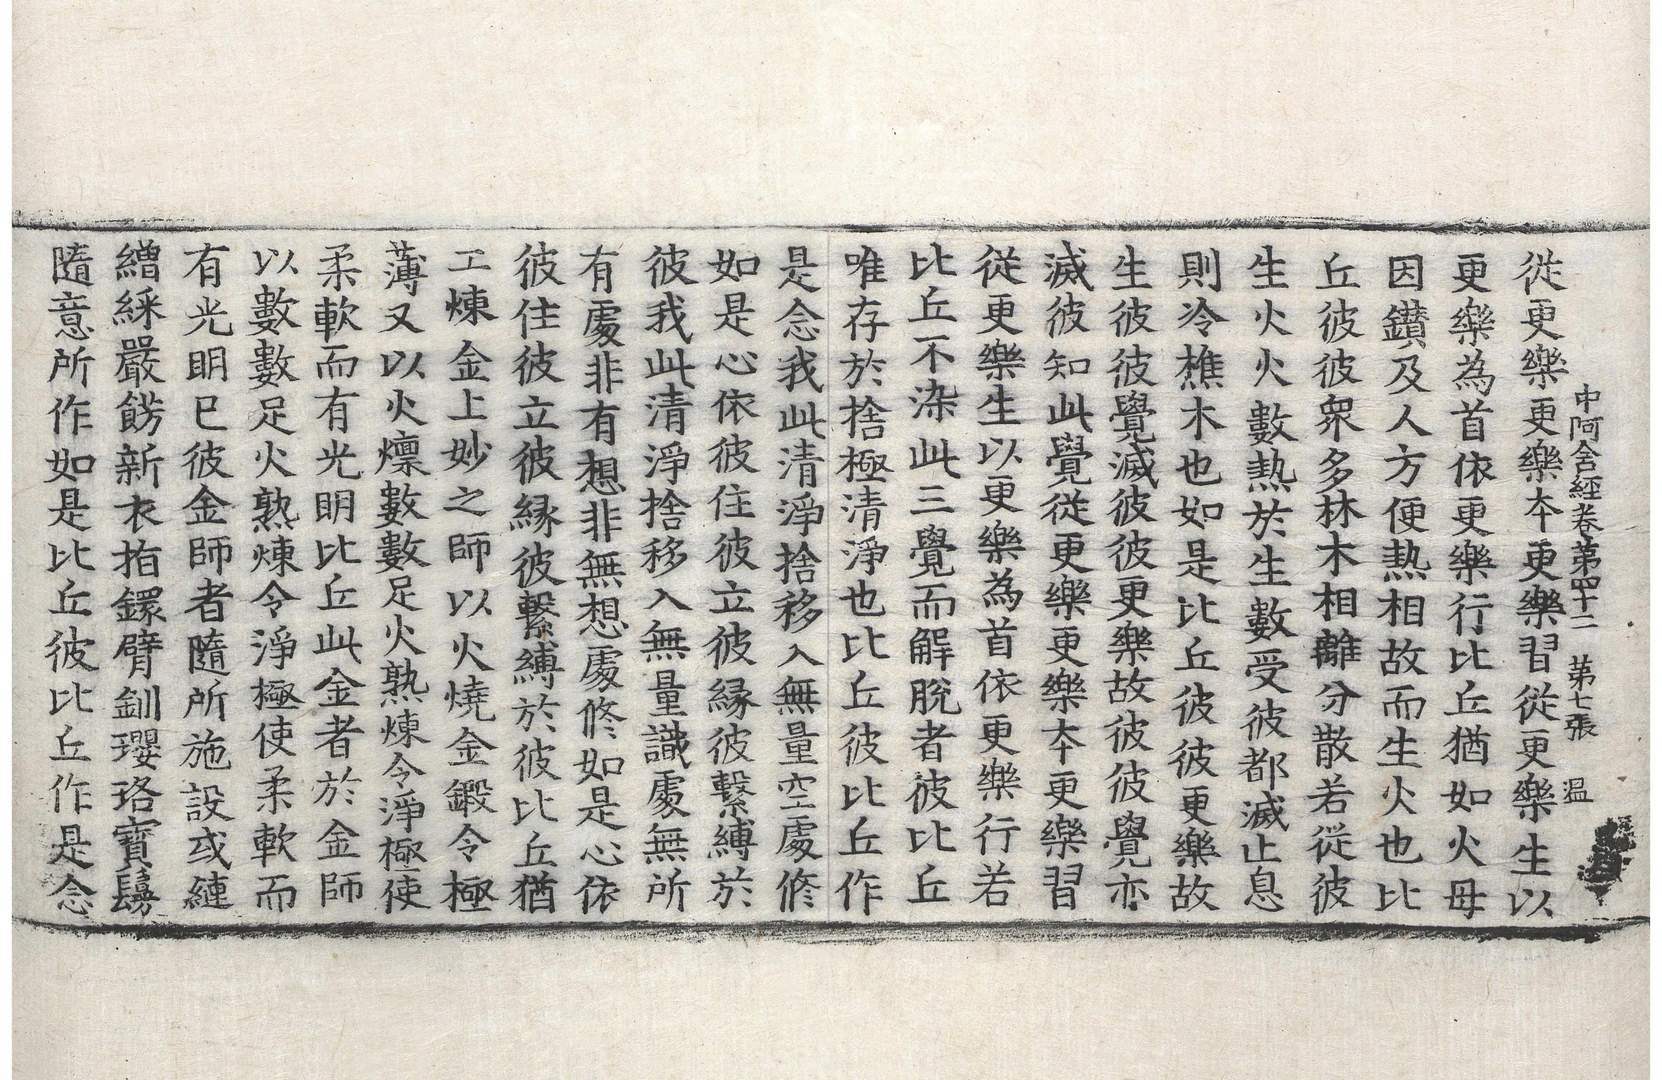 中阿含經卷第四十二 第七張 温
從更樂更樂本更樂習從更樂生以
更樂為首依更樂行比丘猶如火母
因鑚及人方便熱相故而生火也比
丘彼彼衆多林木相離分散若從彼
生火火數熱於生數受彼都滅止息
則冷樵木也如是比丘彼彼更樂故
生彼彼覺滅彼彼更樂故彼彼覺亦
滅彼知此覺從更樂更樂本更樂習
從更樂生以更樂為首依更樂行若
比丘不染此三覺而解脫者彼比丘
唯存於捨極清淨也比丘彼比丘作
是念我此清淨捨移入無量空處修
如是心依彼住彼立彼緣彼繫縛於
彼我此清淨捨移入無量識處無所
有處非有想非無想處修如是心依
彼住彼立彼緣彼繫縛於彼比丘猶
工煉金上妙之師以火燒金鍛令極
薄又以火𤐤數數足火熟煉令淨極使
柔軟而有光明比丘此金者於金師
以數數足火熟煉令淨極使柔軟而
有光明已彼金師者隨所施設或縺
繒綵嚴餝新衣指鐶臂釧瓔珞寶鬘
隨意所作如是比丘彼比丘作是念